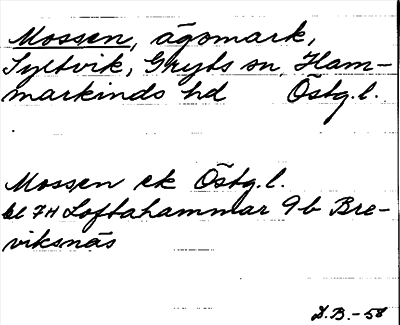 Mossen, ägomark,
Syltvik, Gryts sn, Ham-
markinds hd Östg.l.
Mossen ek Östg.l.
bl 7H Loftahammar 9b Bre-
viksnäs
D.B.-58